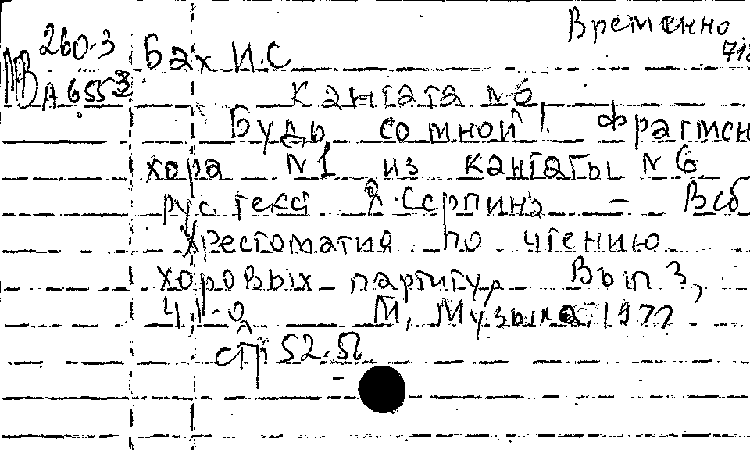 Временно
260.3 Бах И.С
А 655
кантата №6
Будь со мной! Фрагмен
хора №1 из кантаты №6
рус. текст Серпина - В сб
Хрестоматия по чтению
хоровых партитур Вып 3,
М, Музыка, 1977
стр 52.